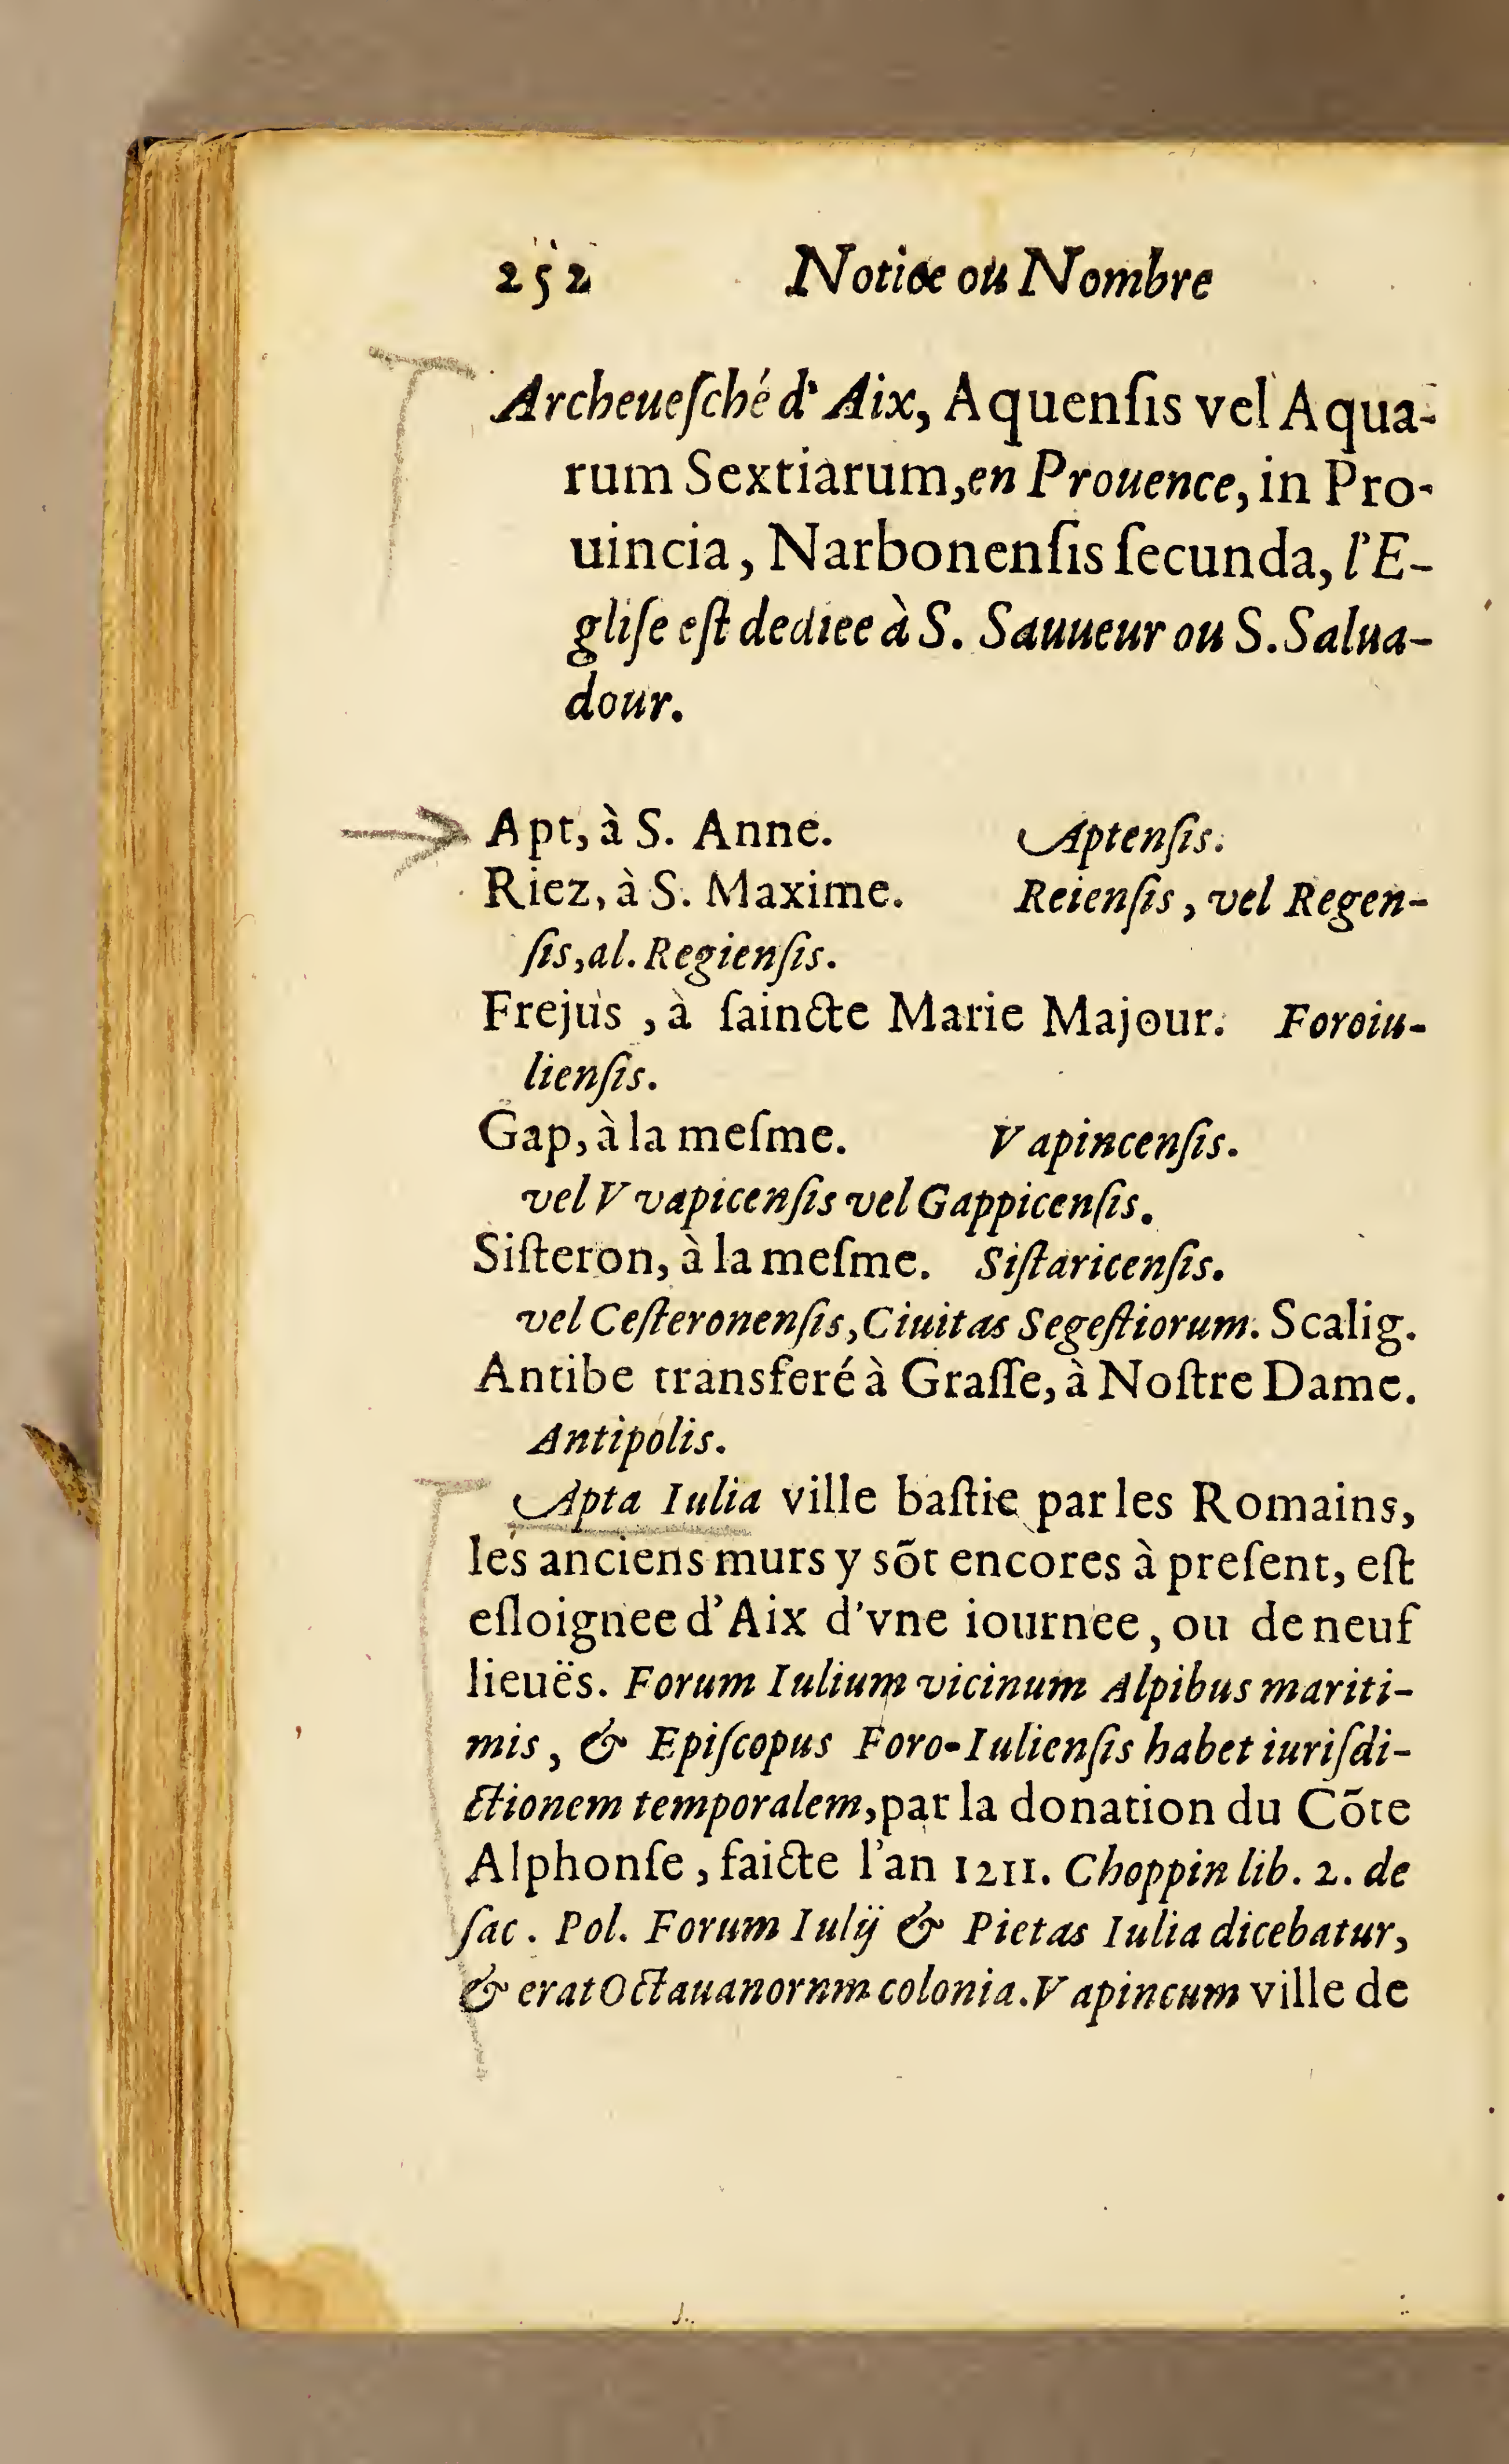 252 Notice ou Nombre
Archeueſché d'Aix, Aquenſis vel Aqua-
rum Sextiarum, en Prouence, in Pro-
uincia, Narbonenſis ſecunda, l'E-
gliſe eſt dediee à S. Sauueur ou S. Salua-
dour.
Apt, à S. Anne. Aptenſis.
Riez, à S. Maxime. Reienſis, vel Regen-
ſis, al. Regienſis.
Frejus, à ſaincte Marie Majour. Foroiu-
lienſis.
Gap, à la meſme. Vapincenſis.
vel Vvapicenſis vel Gappicenſis.
Siſteron, à la meſme. Siſtaricenſis.
vel Ceſteronenſis, Ciuitas Segeſtiorum. Scalig.
Antibe transferé à Graſſe, à Noſtre Dame.
Antipolis.
Apta Iulia ville baſtie par les Romains,
les anciens murs y sõt encores à preſent, eſt
eſloignee d'Aix d'vne iournee, ou de neuf
lieuës. Forum Iulium vicinum Alpibus mariti-
mis, & Epiſcopus Foro-Iulienſis habet iuriſdi-
ctionem temporalem, par la donation du Cõte
Alphonſe, faicte l'an 1211. Choppin lib. 2. de
ſac. Pol. Forum Iulij & Pietas Iulia dicebatur,
& erat Octauanornm colonia. Vapincum ville de